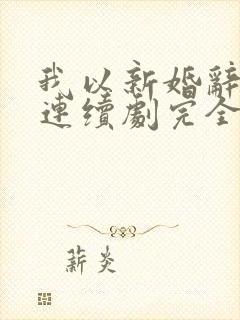 我以新婚辭
連續劇完全
薪炎